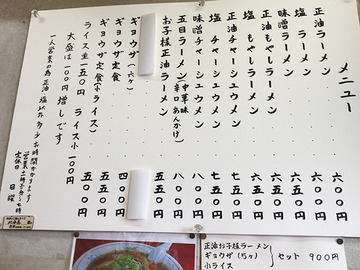 メニュー
正油ラーメン 六〇〇
塩 ラーメン 六〇〇
味噌ラーメン 六〇〇
正油 もやしラーメン 六五〇
塩 もやしラーメン 六五〇
正油 チャーシューメン 七五〇
塩 チャーシューメン 七五〇
味噌 チャーシューメン 八〇〇
五目ラーメン(中華味 辛口あんかけ) 八〇〇
お子様正油ラーメン 五五〇
ギョウザ(六ヶ) 四〇〇
ギョウザ定食 五五〇
ギョウザ定食(小ライス) 五〇〇
ライス 一五〇円 ライス小 一〇〇円
大盛は一〇〇円増しです
一人営業の為 正油、塩以外多少お時間かかります
営業 十一時半から七時
定休日 日曜
正油お子様ラーメン
ギョウザ(5ヶ)
小ライス
セット 900円